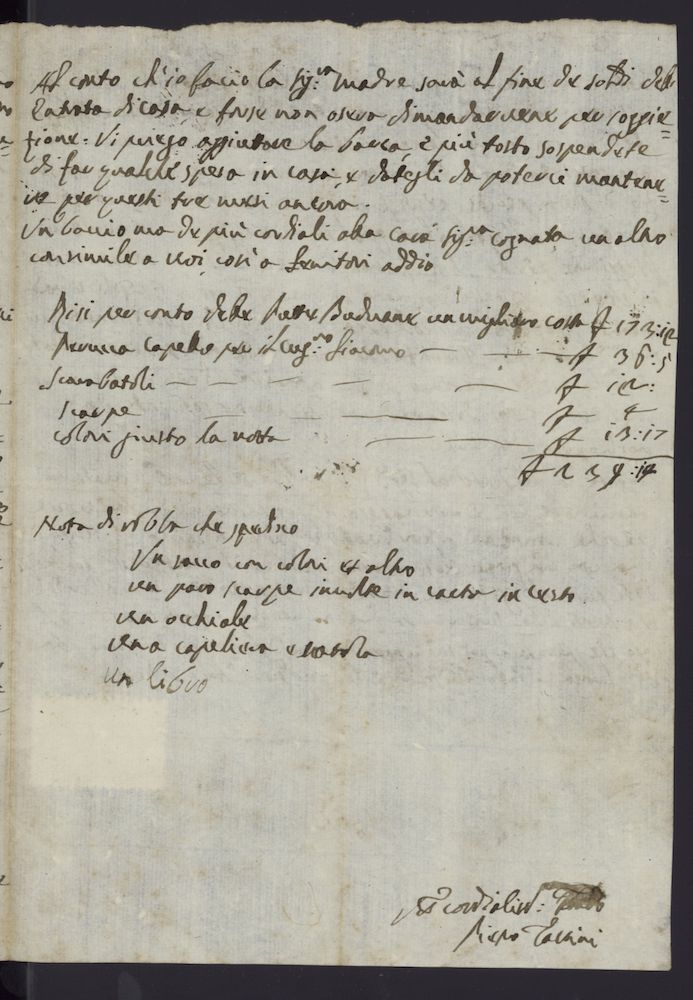 Al conto ch'io facio la Sig:ra madre sarà al fine de soldi della
Tratata di casa e forse non osera dimandarvene per soggie=
zione: Vi priego aggiutare la barca, e più tosto sospendete
di far qualche spesa in casa, e dategli da potersi mantene=
re per questi tre mesi ancora.
Un baccio ma de più cordiali alla cara Sig:ra cognata un altro
consimile a voi, così a Genitori addio
Risi per conto delle Putte un migliaro costa 173:12
Perucca capello per il Sig:no Giacomo — — — 36:5
Scarabatoli — — — — — 12:
Scarpe — — — 4
colori giusto la notta — — 13:17
239:14
Nota di robba che spedisco
Un sacco con colori et altro
un paro scarpe involte in carta in cesto
un occhiale
una capeliera e scatola
un libro
cordialiss:
Piero